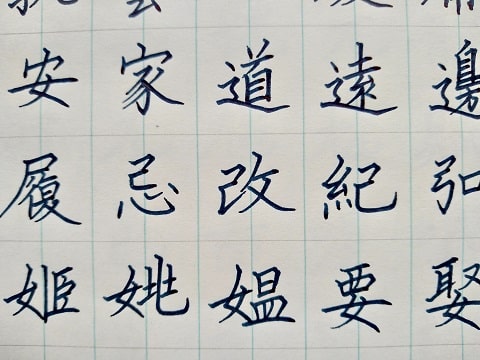 安家道遠邊
履忌改紀弘
姬姚媼要娶